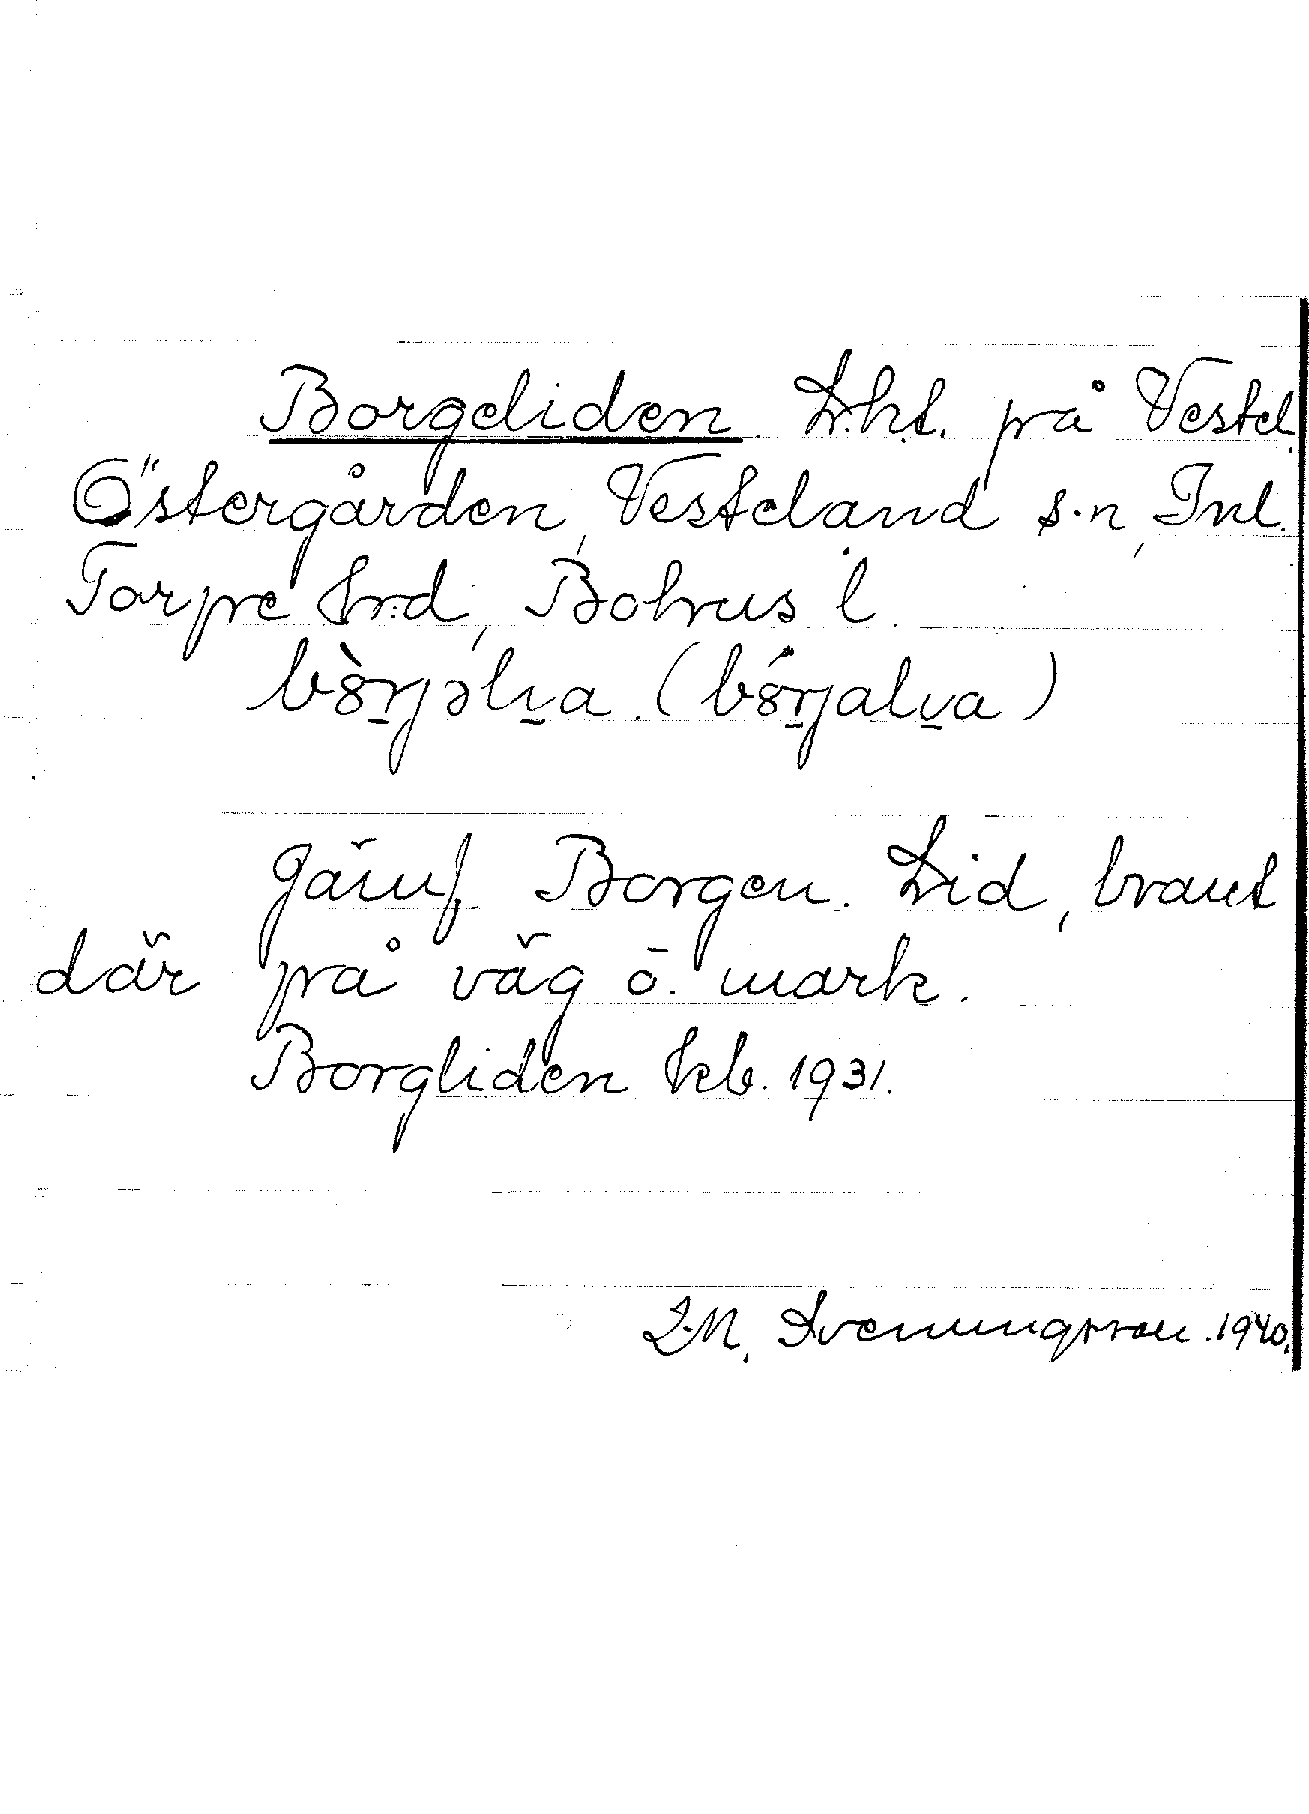 Borgeliden. Lht. på Vestel.
Östergården, Vesteland s.n, Inl.
Torpe hrd, Bohus l.
bö̀rjəlıa. (börjalıa)
Jämf. Borgen. Lid, brant
där på väg ö. mark.
Borgliden kb. 1931.
L.M. Svenungsson. 1940.